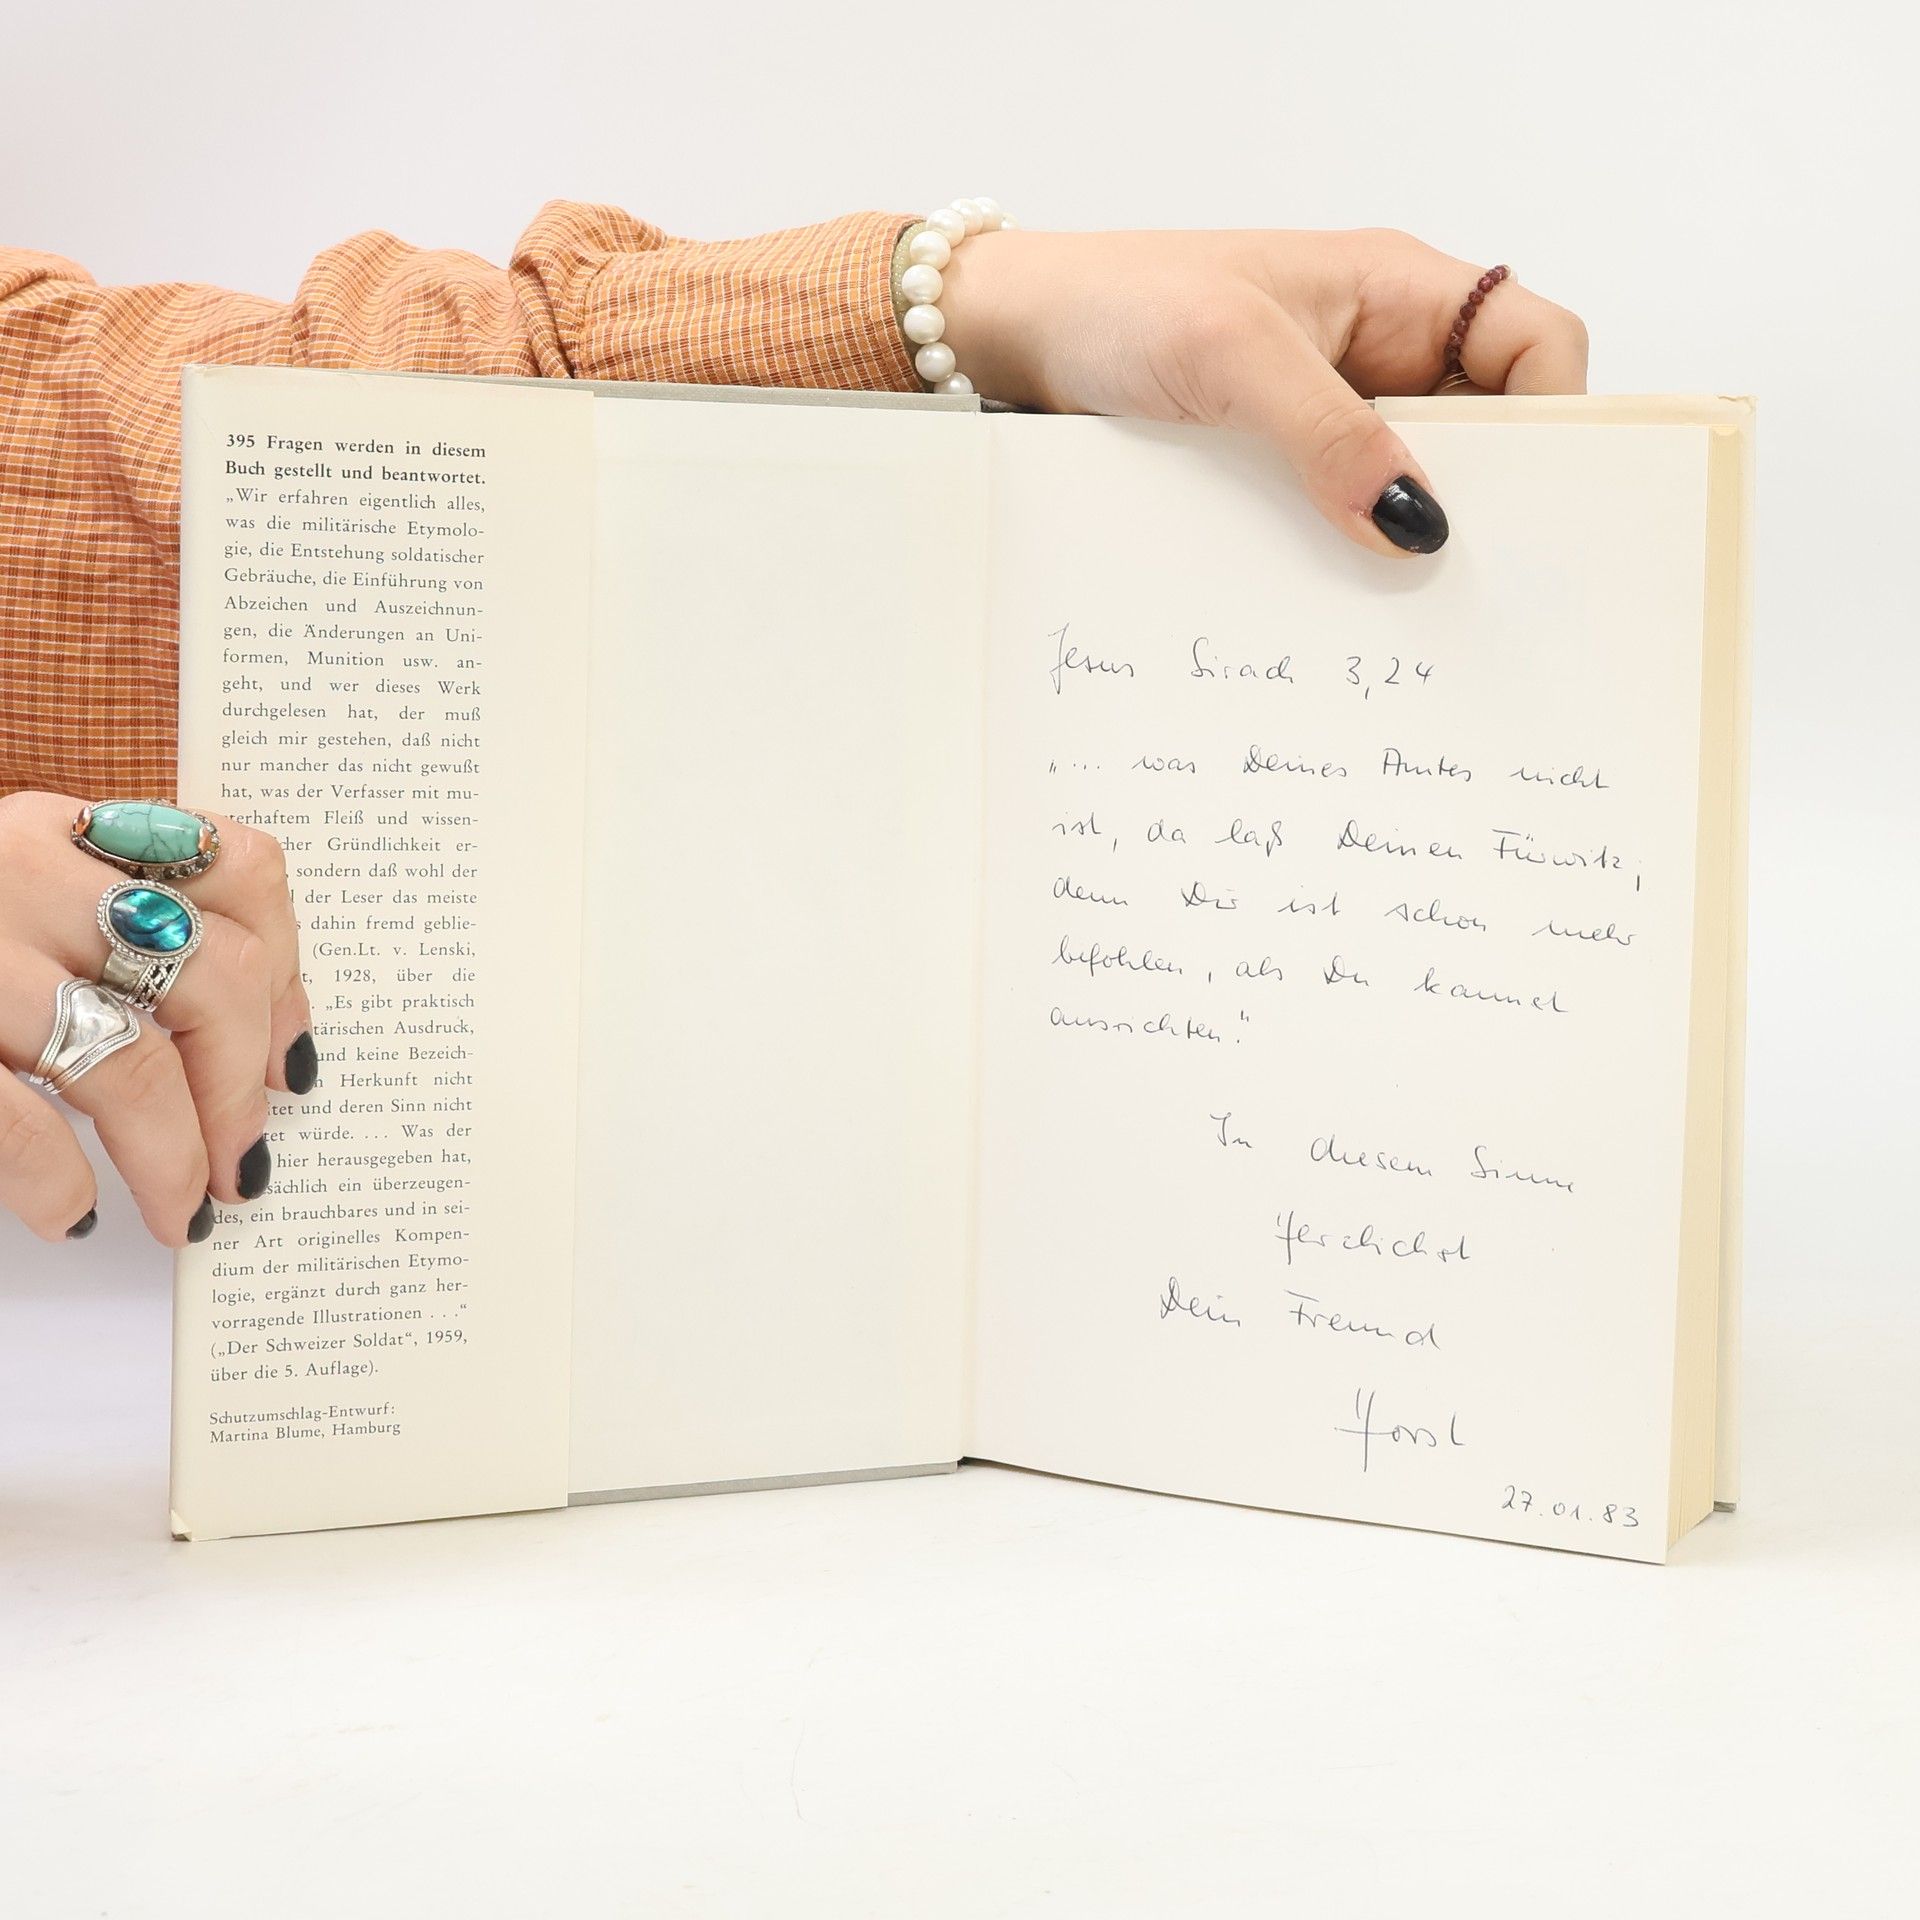 395 Fragen werden in diesem
Buch gestellt und beantwortet.
„Wir erfahren eigentlich alles,
was die militärische Etymolo-
gie, die Entstehung soldatischer
Gebräuche, die Einführung von
Abzeichen und Auszeichnun-
gen, die Änderungen an Uni-
formen, Munition usw. an-
geht, und wer dieses Werk
durchgelesen hat, der muß
gleich mir gestehen, daß nicht
nur mancher das nicht gewußt
hat, was der Verfasser mit mu-
terhaftem Fleiß und wissen-
cher Gründlichkeit er-
, sondern daß wohl der
der Leser das meiste
s dahin fremd geblie-
(Gen.Lt. v. Lenski,
t, 1928, über die
. „Es gibt praktisch
tärischen Ausdruck,
und keine Bezeich-
n Herkunft nicht
tet und deren Sinn nicht
tet würde. ... Was der
hier herausgegeben hat,
sächlich ein überzeugen-
des, ein brauchbares und in sei-
ner Art originelles Kompen-
dium der militärischen Etymo-
logie, ergänzt durch ganz her-
vorragende Illustrationen . . .“
(„Der Schweizer Soldat“, 1959,
über die 5. Auflage).
Schutzumschlag-Entwurf:
Martina Blume, Hamburg
Jesus Sirach 3,24
„... was Deines Amtes nicht
ist, da laß Deinen Fürwitz;
denn Dir ist schon mehr
befohlen, als Du kannst
ausrichten."
In diesem Sinne
Herzlichst
Dein Freund
Horst
27.01.83